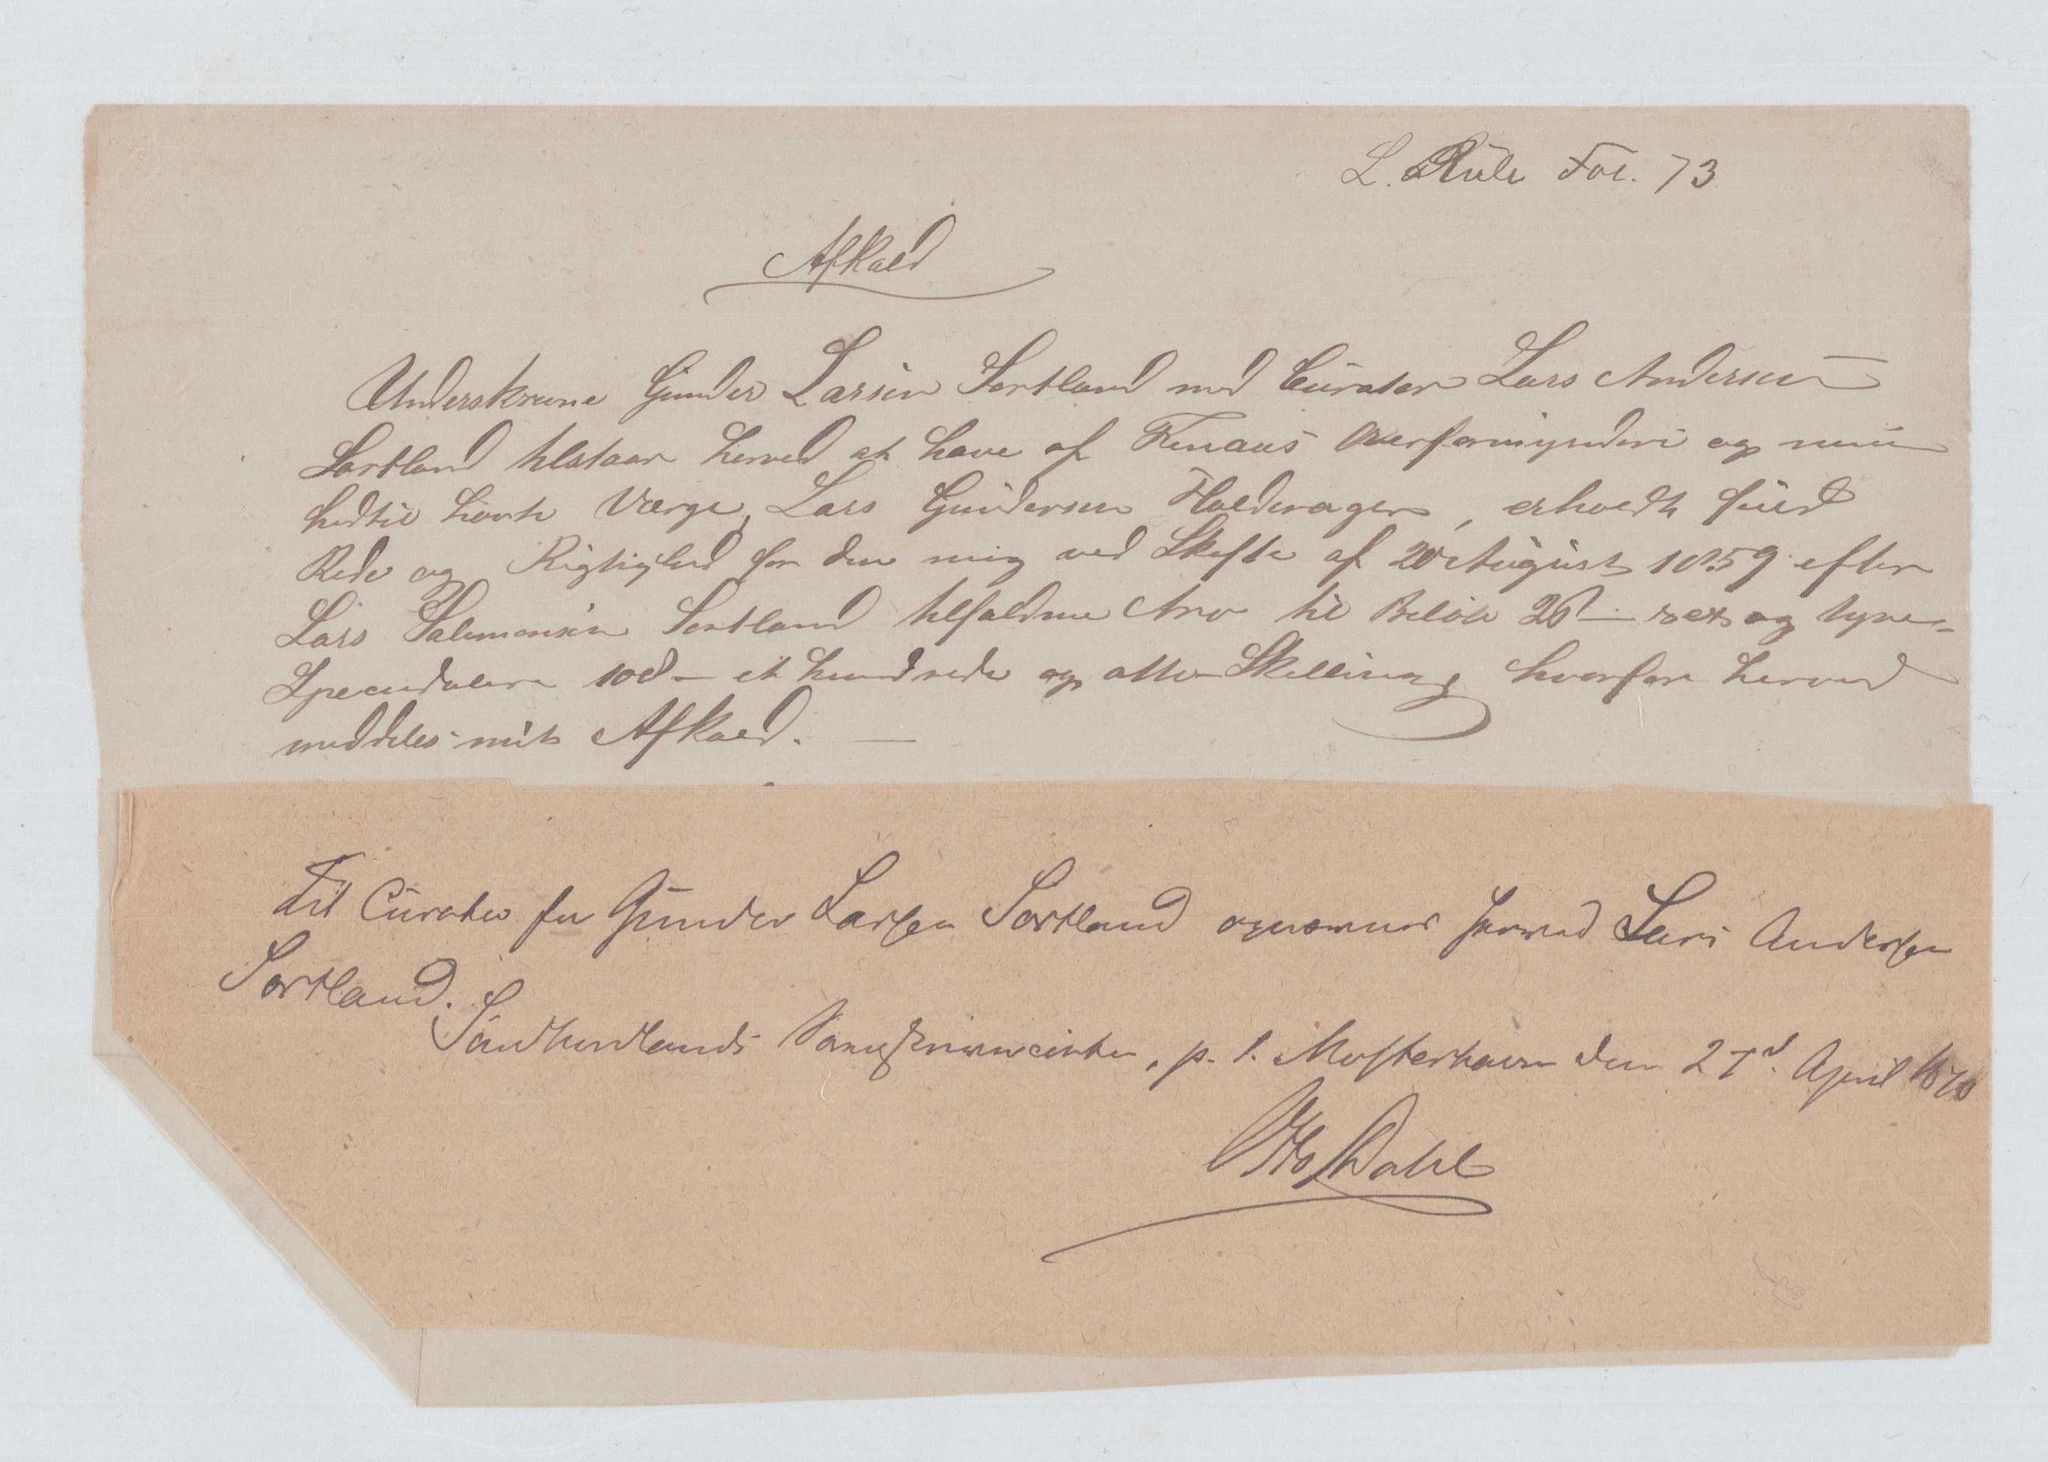 L. Rüle Fol. 73
Afkald
Underskrevne Gunder Larsen Sortland med Curator Lars Andersen
Sortland tilstaar herved at have af Finaas Overformynderi og min
hidtil havte Værge, Lars Gundersen Holdvagen, erholdt fuld
Rede og Rigtighed for den mig ved Skifte af 20 August 1859 efter
Lars Salemonsen Sortland tilfaldne Arv til Beløb 26 – sex og tyve –
Speciedaler 108 – et hundrede og otte Skilling, hvorfor herved
meddeles mit Afkald. –
Til Curator for Gunder Larsen Sortland opnævnes herved Lars Andersen
Sortland.
Søndhordlands Sorenskrivercontor, p. t. Mosterhavn den 27d. April 1870
Otto Dahl